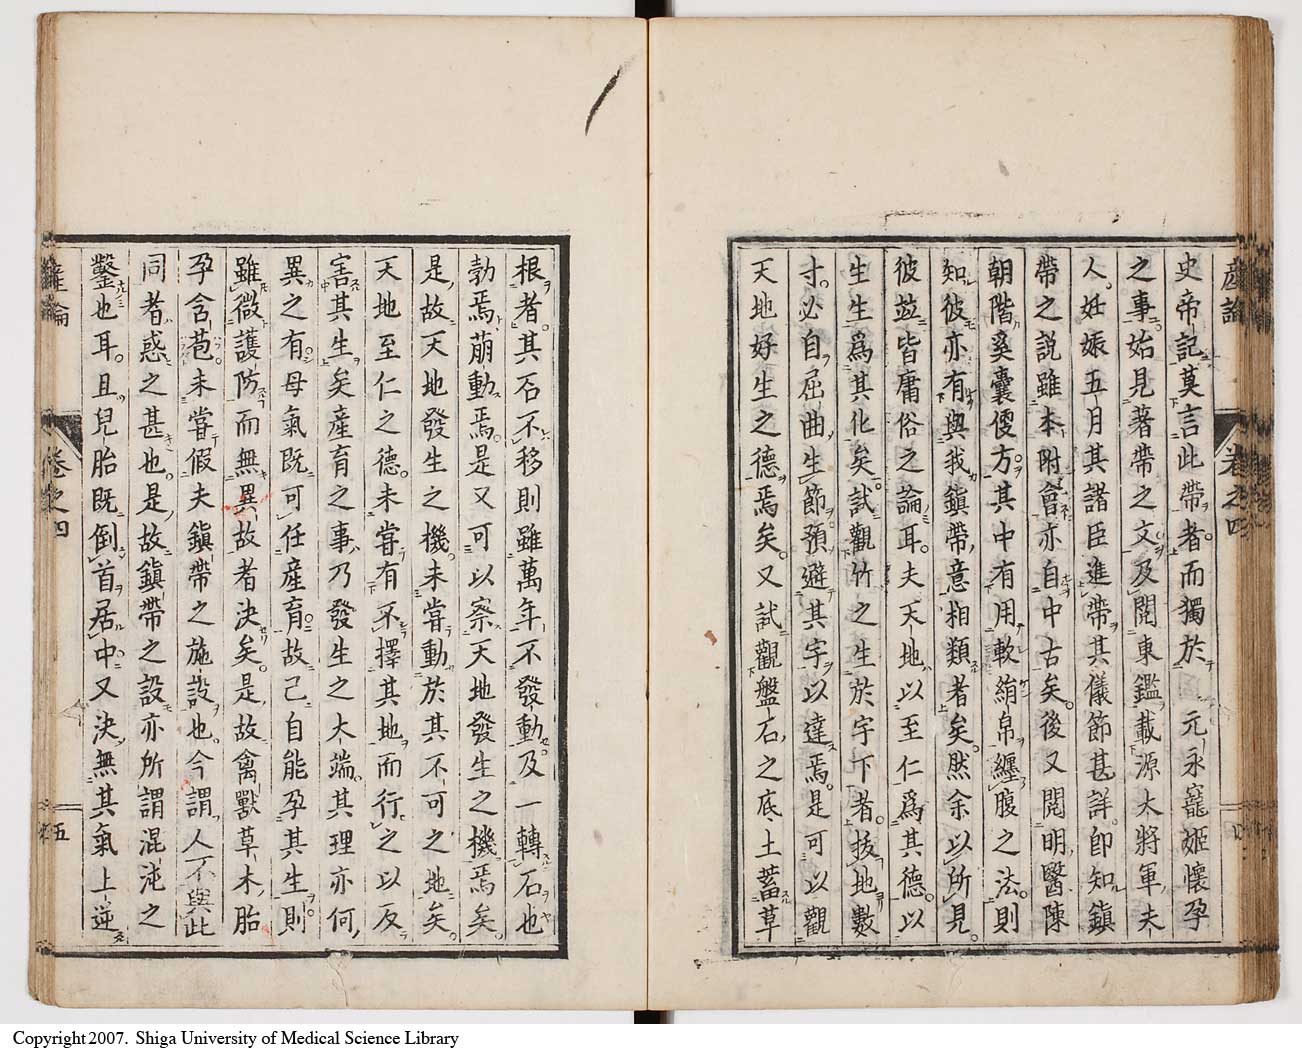 產論
卷之四
史帝記莫言此帶者而獨於 元永寵姬懷孕
之事始見著帶之文及閱東鑑載源大將軍夫
人妊娠五月其諸臣進帶其儀節甚詳卽知鎭
帶之說雖本附會亦自中古矣後又閱明醫陳
朝階奚囊便方其中有用軟絹帛纏腹之法則
知彼亦有與我鎭帶意相類者矣然余以所見
彼竝皆庸俗之論耳夫天地以至仁爲其德以
生生爲其化矣試觀竹之生於宇下者拔地數
寸必自屈曲生節預避其宇以達焉是可以觀
天地好生之德焉矣又試觀盤石之底土蓄草
根者其石不移則雖萬年不發動及一轉石也
勃焉萠動焉是又可以察天地發生之機焉矣
是故天地發生之機未嘗動於其不可之地矣
天地至仁之德未嘗有不擇其地而行之以反
害其生矣產育之事乃發生之大端其理亦何
異之有母氣既可任產育故己自能孕其生則
雖微護防而無異故者決矣是故禽獸草木胎
孕含苞未嘗假夫鎭帶之施設也今謂人不與此
同者惑之甚也是故鎭帶之設亦所謂混沌之
鑿也耳且兒胎既倒首居中又決無其氣上逆
產論
卷之四
五
Copyright 2007. Shiga University of Medical Science Library